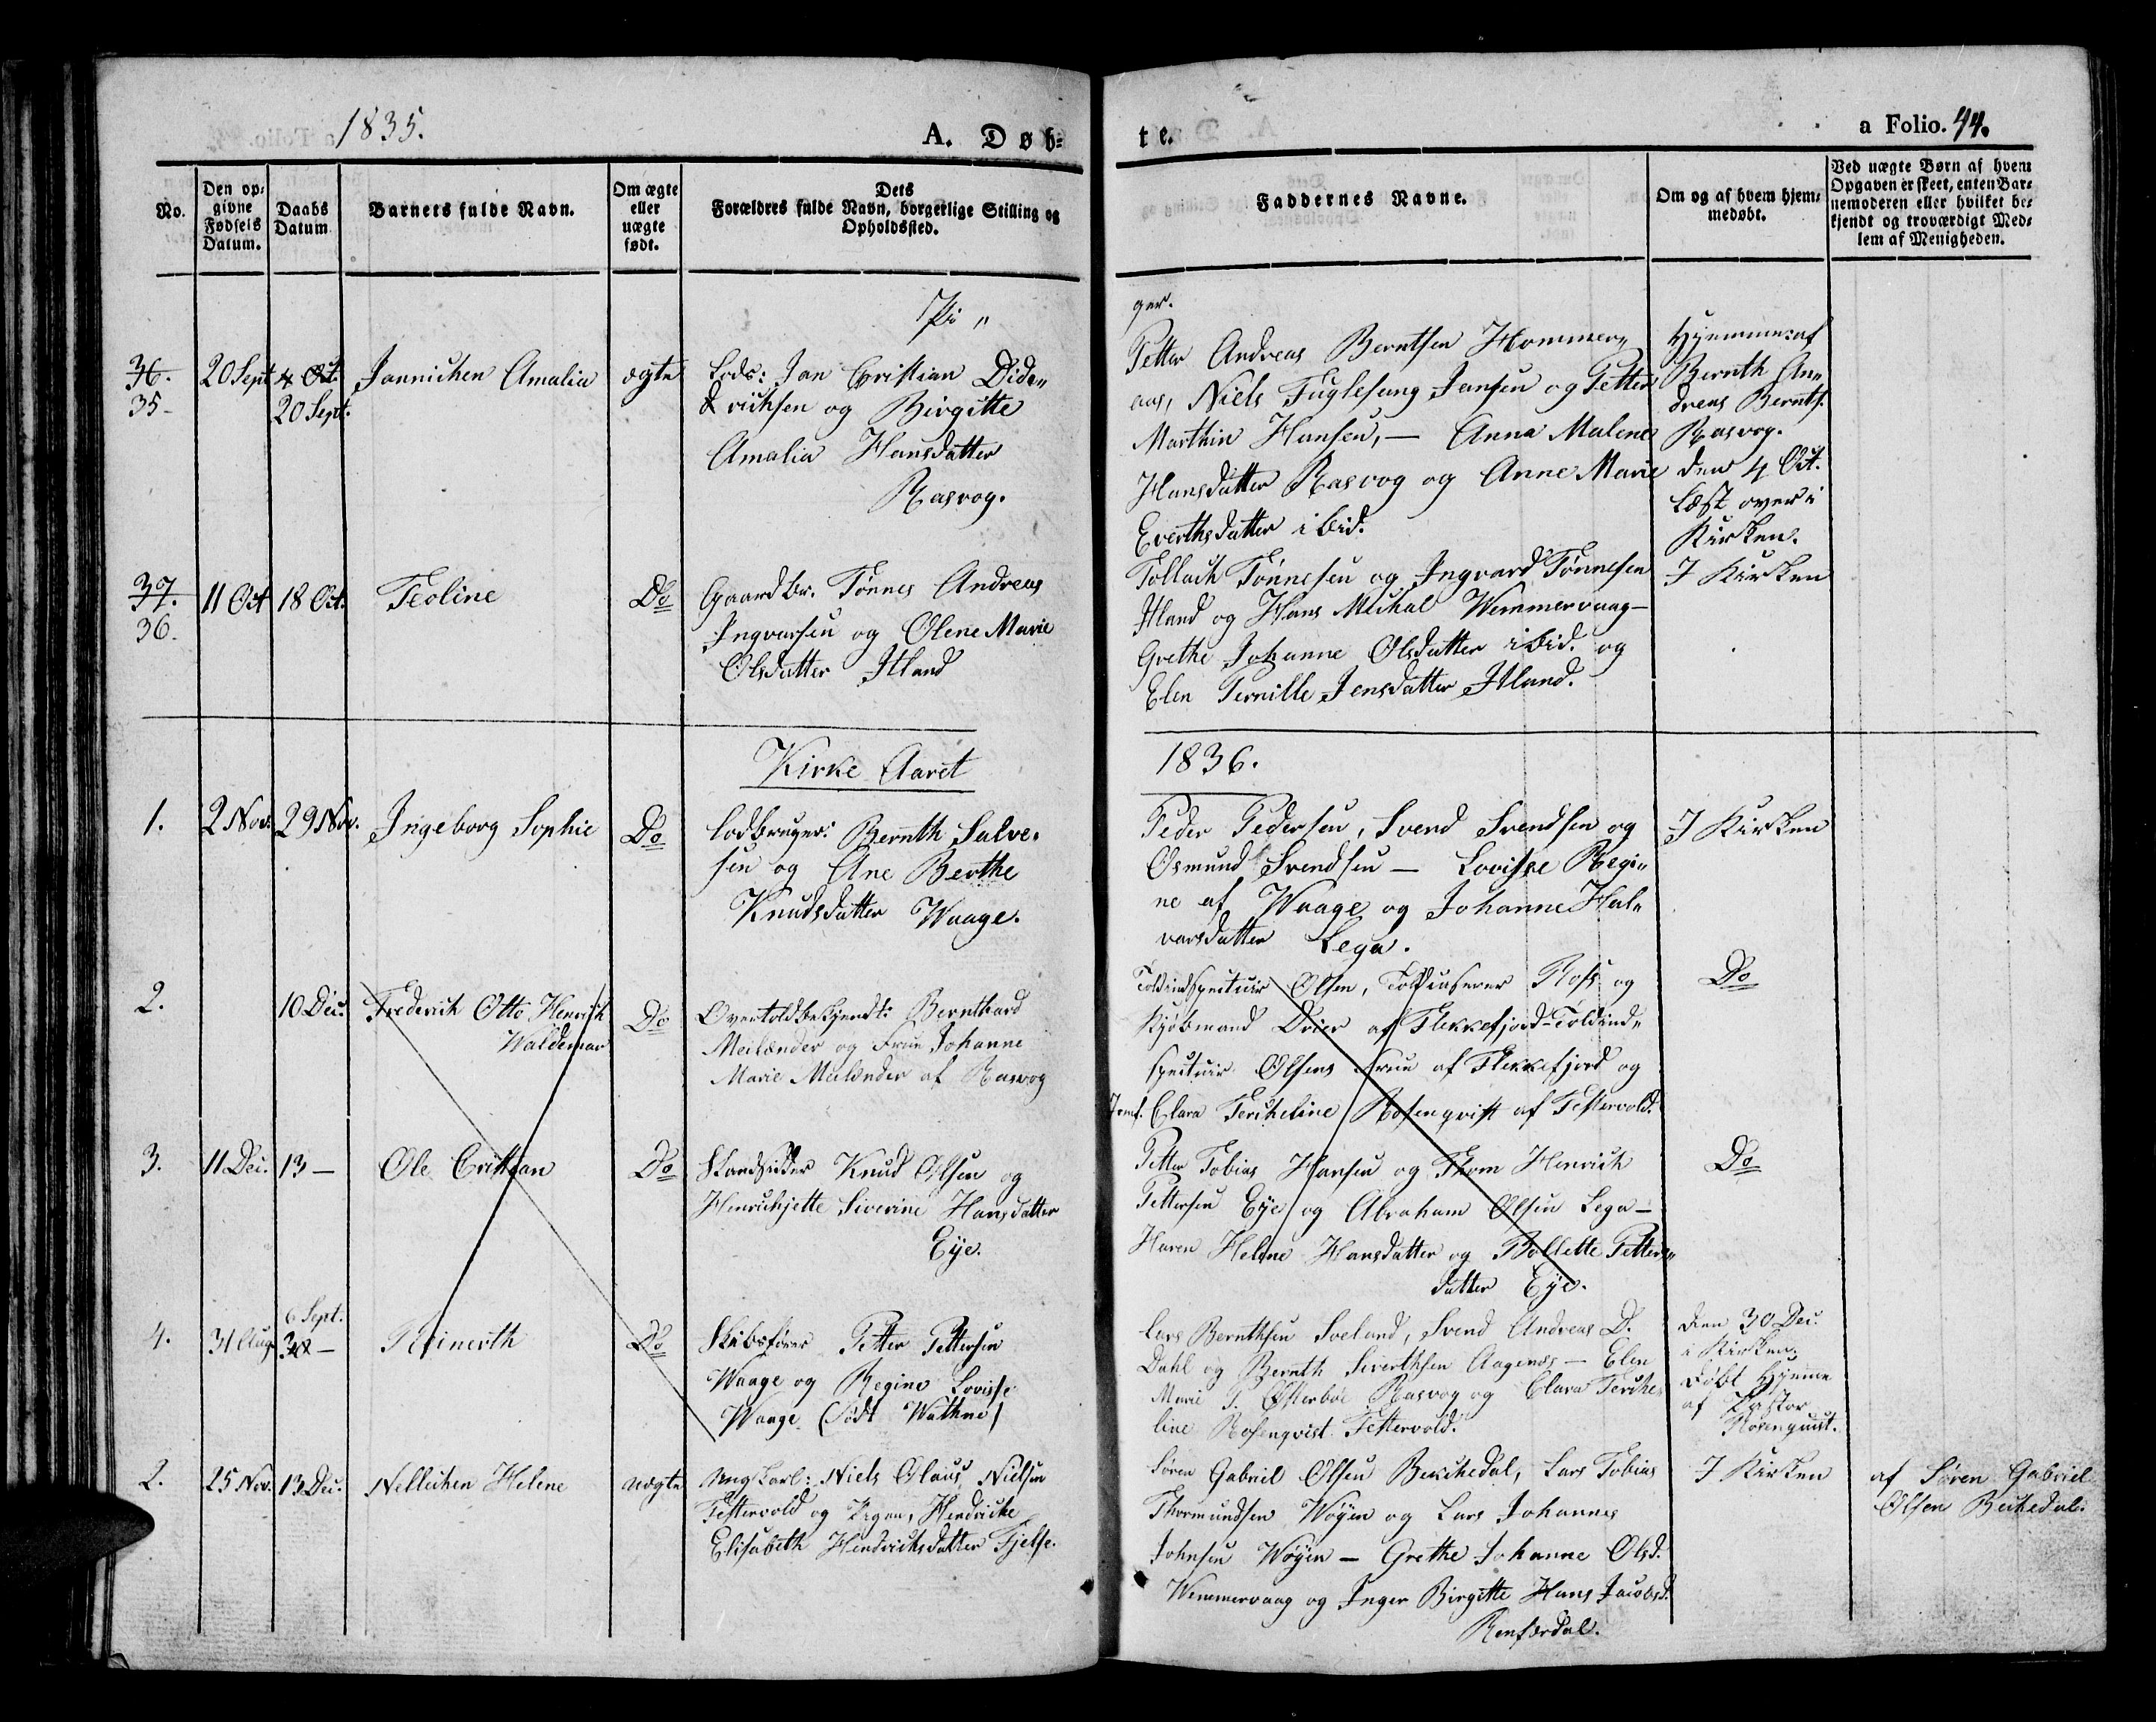 1835.
A. Døb-
te.
a Folio. 44.
No.
Den op-
givne
Fødsels
Datum.
Daabs
Datum
Barnets fulde Navn.
Om ægte
eller
uægte
født.
Dets
Forældres fulde Navn, borgerlige Stilling og
Opholdssted.
Faddernes Navne.
Om og af hvem hjem-
medøbt.
Ved uægte Børn af hvem
Opgaven er skeet, enten Bar-
nemoderen eller hvilket be-
kjendt og troværdigt Med-
lem af Menigheden.
ger.
36.
35-
20 Sept
4 Oct.
20 Sept.
Jannichen Amalia
ægte
Lods: Jan Cristian Dide„
richsen og Birgitte
Amalia Hansdatter
Rasvog.
Petter Andreas Berntsen Hommer„
aas, Niels Fuglesang Jansen og Petter
Marthin Hansen, — Anna Malene
Hansdatter Rasvog og Anne Marie
Everthsdatter ibid.
Hjemme: af
Bernth An„
dreas Bernts.
Rasvog.
den 4 Oct.
læst over i
Kirken.
37.
36.
11 Oct
18 Oct.
Teoline
Do
Gaardbr. Tønnes Andreas
Ingvarsen og Olene Marie
Olsdatter Itland
Tollach Tønnesen og Ingvard Tønnesen
Itland og Hans Michal Wemmervaag —
Grethe Johanne Olsdatter ibid. og
Elen Pernille Jensdatter Itland.
I Kirken
Kirke Aaret
1836.
1.
2 Nov.
29 Nov.
Ingeborg Sophie
Do
Lodbruger: Bernth Salve-
sen og Ane Berthe
Knudsdatter Waage.
Peder Pedersen, Svend Svendsen og
Osmund Svendsen — Lovisse Regi„
ne af Waage og Johanne Hal„
varsdatter Lega.
I Kirken
2.
10 Dec.
Frederich Otto Henrich
Waldemar
Do
Overtoldbetjent: Bernthard
Meilænder og Frue Johanne
Marie Meilænder af Rasvog
Toldinspecteur Olsen, Toldcasserer Ross og
Kjøbmand Dreier af Flekkefjord — Toldind„
specteur Olsens Frue af Flekkefjord og
Jomf. Clara Percheline Rosenqvist af Festervold.
Do
3.
11 Dec.
13 —
Ole Cristian
Do
Strandsidder Knud Olsen og
Henrichjette Siverine Hansdatter
Eye.
Petter Tobias Hansen og Thom Henrich
Pettersen Eye og Abraham Olsen Lega —
Karen Helene Hansdatter og Bollette Petters„
datter Eye.
Do
4.
31 Aug.
6 Sept.
30 —
Reinerth
Do
Skibsfører Petter Pettersen
Waage og Regine Lovisse
Waage (født Wathne)
Lars Bernthsen Sveland, Svend Andreas D.
Dahl og Bernth Siverthsen Aagenæs — Elen
Marie P. Østerboe Rasvog og Clara Perche
line Rosenqvist Festervold.
den 30 Dec.
i Kirken.
døbt Hjemme
af Pastor
Rosenquist.
2.
25 Nov.
13 Dec.
Nellichen Helene
uægte
Ungkarl: Niels Olaus Nielsen
Festervold og Pigen, Hendricke
Elisabeth Hendrichsdatter Fjelse.
Søren Gabriel Olsen Bekkedal, Lars Tobias
Thormundsen Woyen og Lars Johannes
Johnsen Woyen — Grethe Johanne Olsd.
Wemmervaag og Inger Birgitte Hans Jacobsd.
Renfærdal.
I Kirken
af Søren Gabriel
Olsen Beckedal.